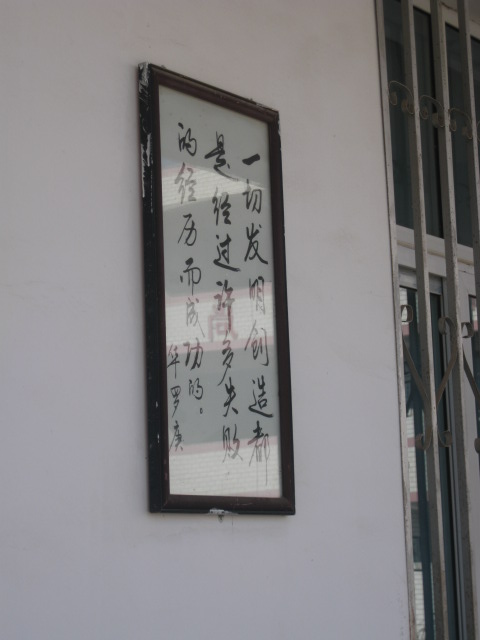 一切发明创造都
是经过许多失败
的经历而成功的。
华罗庚